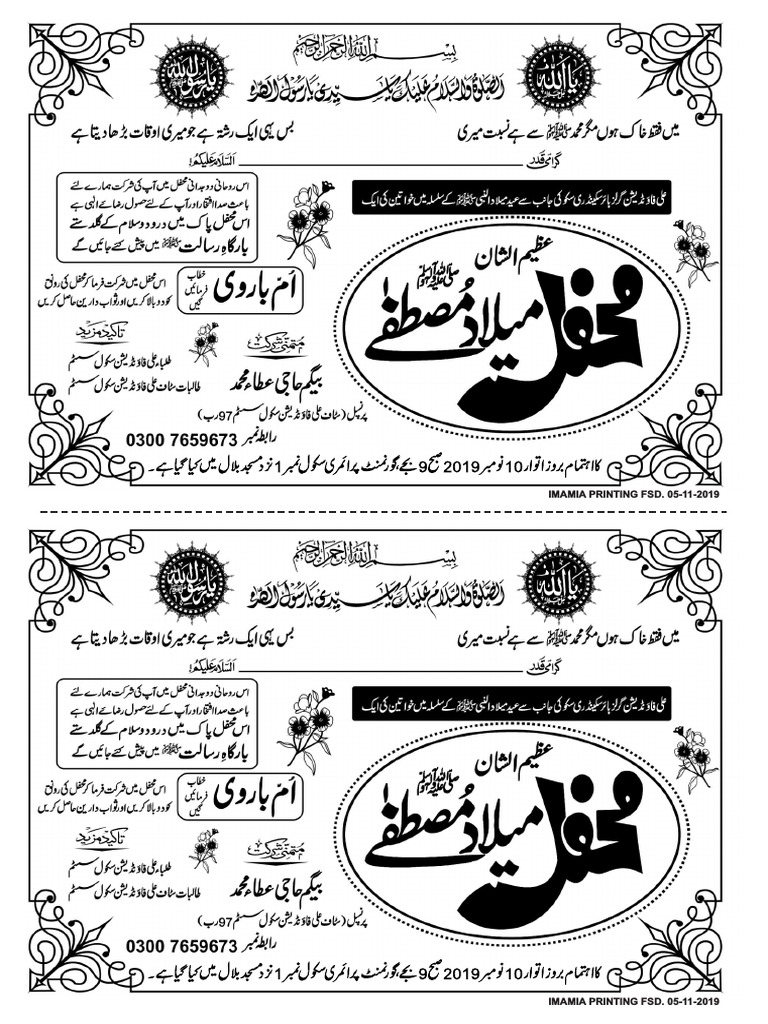 بسم اللہ الرحمن الرحیم
یا اللہ
یا رسول اللہ
الصلوٰۃ والسلام علیک یا سیدی یا رسول اللہ
میں فقط خاک ہوں مگر محمد ﷺ سے ہے نسبت میری
بس یہی ایک رشتہ ہے جو میری اوقات بڑھا دیتا ہے
گرامی قدر ــــــــــــ السلام علیکم!
علی فاؤنڈیشن گرلز ہائر سکینڈری سکو کی جانب سے عید میلاد النبی ﷺ کے سلسلہ میں خواتین کی ایک
عظیم الشان
محفل میلاد مصطفےٰ ﷺ
اس روحانی و جدانی محفل میں آپ کی شرکت ہمارے لئے
باعث صد افتخار اور آپ کے لئے حصول رضائے الٰہی ہے
اس محفل پاک میں درود و سلام کے گلدستے
بارگاہِ رسالت ﷺ میں پیش کئے جائیں گے
اُم باروی
خطاب فرمائیں گیں
اس محفل میں شرکت فرما کر محفل کی رونق
کو دوبالا کریں اور ثواب دارین حاصل کریں
متمنی شرکت
بیگم حاجی عطاء محمد
پرنسپل (سٹاف علی فاؤنڈیشن سکول سسٹم 97 رب)
رابطہ نمبر 0300 7659673
تاکید مزید
طلباء علی فاؤنڈیشن سکول سسٹم
طالبات سٹاف علی فاؤنڈیشن سکول سسٹم
کا اہتمام بروز اتوار 10 نومبر 2019 صبح 9 بجے، گورنمنٹ پرائمری سکول نمبر 1 نزد مسجد بلال میں کیا گیا ہے۔
IMAMIA PRINTING FSD. 05-11-2019
بسم اللہ الرحمن الرحیم
یا اللہ
یا رسول اللہ
الصلوٰۃ والسلام علیک یا سیدی یا رسول اللہ
میں فقط خاک ہوں مگر محمد ﷺ سے ہے نسبت میری
بس یہی ایک رشتہ ہے جو میری اوقات بڑھا دیتا ہے
گرامی قدر ــــــــــــ السلام علیکم!
علی فاؤنڈیشن گرلز ہائر سکینڈری سکو کی جانب سے عید میلاد النبی ﷺ کے سلسلہ میں خواتین کی ایک
عظیم الشان
محفل میلاد مصطفےٰ ﷺ
اس روحانی و جدانی محفل میں آپ کی شرکت ہمارے لئے
باعث صد افتخار اور آپ کے لئے حصول رضائے الٰہی ہے
اس محفل پاک میں درود و سلام کے گلدستے
بارگاہِ رسالت ﷺ میں پیش کئے جائیں گے
اُم باروی
خطاب فرمائیں گیں
اس محفل میں شرکت فرما کر محفل کی رونق
کو دوبالا کریں اور ثواب دارین حاصل کریں
متمنی شرکت
بیگم حاجی عطاء محمد
پرنسپل (سٹاف علی فاؤنڈیشن سکول سسٹم 97 رب)
رابطہ نمبر 0300 7659673
تاکید مزید
طلباء علی فاؤنڈیشن سکول سسٹم
طالبات سٹاف علی فاؤنڈیشن سکول سسٹم
کا اہتمام بروز اتوار 10 نومبر 2019 صبح 9 بجے، گورنمنٹ پرائمری سکول نمبر 1 نزد مسجد بلال میں کیا گیا ہے۔
IMAMIA PRINTING FSD. 05-11-2019